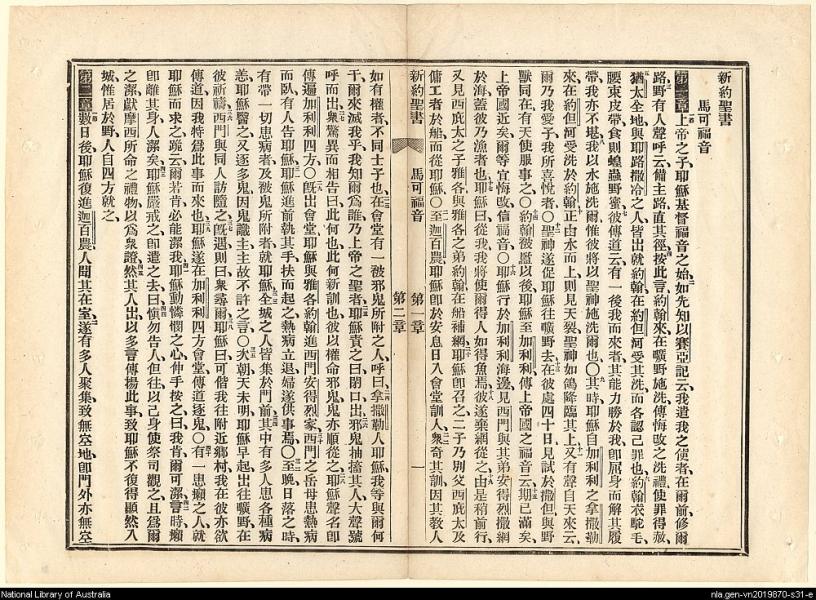 新約聖書
馬可福音
第一章上帝之子耶穌基督福音之始如先知以賽亞記云我遣我之使者在爾前修爾
路野有人聲呼云備主路直其徑按此言約翰來在曠野施洗傳悔改之洗禮使罪得赦
猶太全地與耶路撒冷之人皆出就約翰在約但河受其洗而各認己罪也約翰衣駝毛
腰束皮帶食則蝗蟲野蜜彼傳道云有一後我而來者其能力勝於我卽屈身而解其履
帶我亦不堪我以水施洗爾惟彼將以聖神施洗爾也〇其時耶穌自加利利之拿撒勒
來在約但河受洗於約翰正由水而上則見天裂聖神如鴿降臨其上又有聲自天來云
爾乃我愛子我所喜悅者〇聖神遂促耶穌往曠野去在彼處四十日見試於撒但與野
獸同在有天使服事之〇約翰被擫以後耶穌至加利利傳上帝國之福音云期已滿矣
上帝國近矣爾等宜悔改信福音〇耶穌行於加利利海邊見西門與其弟安得烈撒網
於海蓋彼乃漁者也耶穌曰從我我將使爾得人如得魚焉彼遂棄網從之由是稍前行
又見西庇太之子雅各與雅各之弟約翰在船補網耶穌卽召之二子乃別父西庇太及
傭工者於船而從耶穌〇至迦百農耶穌卽於安息日入會堂訓人衆奇其訓因其教人
新約聖書
馬可福音
第一章
第二章
一
如有權者不同士子也在會堂有一被邪鬼所附之人呼曰拿撒勒人耶穌我等與爾何
干爾來滅我乎我知爾爲誰乃上帝之聖者耶穌責之曰閉口出邪鬼抽搐其人大聲號
呼而出衆驚異而相告曰此何也此何新訓也彼以權命邪鬼鬼亦順從之耶穌聲名卽
傳遍加利利四方〇旣出會堂耶穌與雅各約翰進西門安得烈家西門之岳母患熱病
而臥有人告耶穌耶穌進前執其手扶而起之熱病立退婦遂供事焉〇至晚日落之時
有帶一切患病者及被鬼所附者就耶穌全城之人皆集於門前其中有多人患各種病
恙耶穌醫之又逐多鬼因鬼識主主故不許之言〇次朝天未明耶穌早起出往曠野在
彼祈禱西門與同人訪隨之旣遇則曰衆尋爾耶穌曰可偕我往附近鄉村我在彼亦欲
傳道因我特爲此事而來也耶穌遂在加利利四方會堂傳道逐鬼〇有一患癩之人就
耶穌而求之跪云爾若肯必能潔我耶穌動憐憫之心伸手按之曰我肯爾可潔言時癩
卽離其身人潔矣耶穌嚴戒之卽遣之去曰愼勿告人但往以己身使祭司觀之且爲爾
之潔獻摩西所命之禮物以爲衆證然其人出以多言傳揚此事致耶穌不復得顯然入
城惟居於野人自四方就之
第二章數日後耶穌復進迦百農人聞其在室遂有多人聚集致無容地卽門外亦無容
National Library of Australia
nla.gen-vn2019870-s31-e